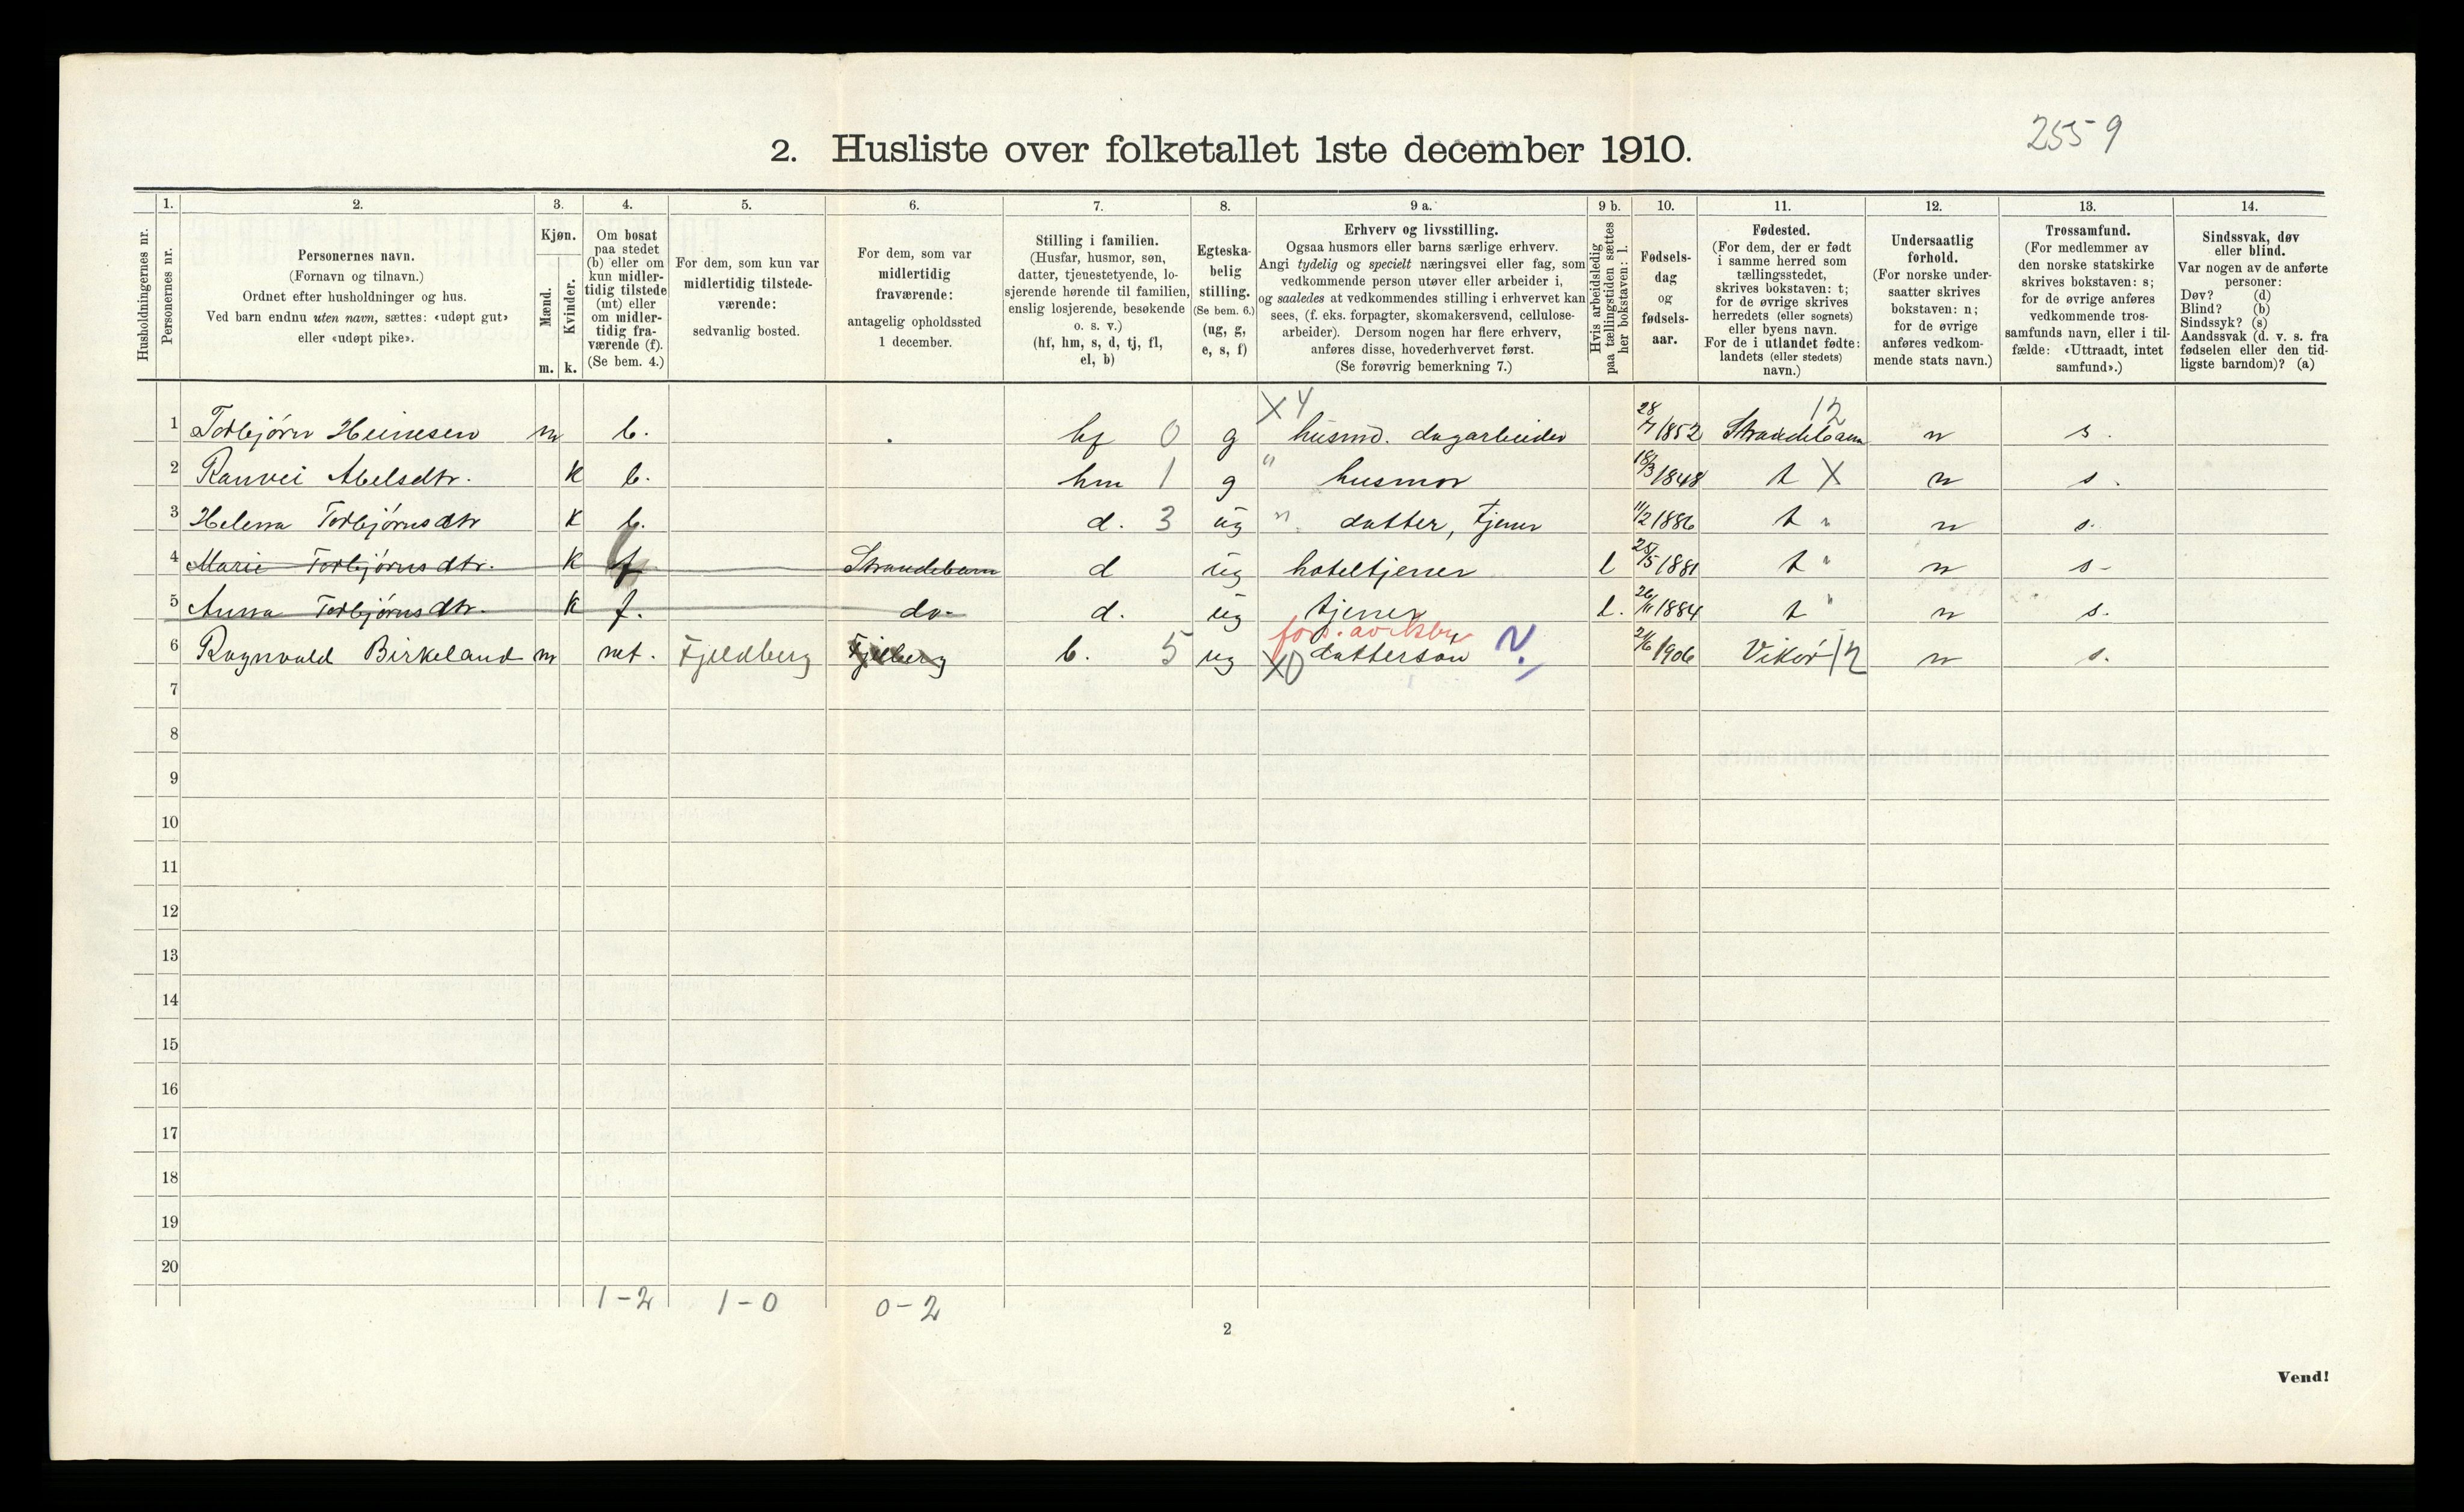 2559
2. Husliste over folketallet 1ste december 1910.
1. 2. 3. 4. 5. 6. 7. 8. 9 a. 9 b. 10. 11. 12. 13. 14.
Husholdningernes nr.
Personernes nr.
Personernes navn.
(Fornavn og tilnavn.)
Ordnet efter husholdninger og hus.
Ved barn endnu uten navn, sættes: «udøpt gut»
eller «udøpt pike».
Kjøn.
Mænd.
Kvinder.
m. k.
Om bosat
paa stedet
(b) eller om
kun midler-
tidig tilstede
(mt) eller
om midler-
tidig fra-
værende (f).
(Se bem. 4.)
For dem, som kun var
midlertidig tilstede-
værende:
sedvanlig bosted.
For dem, som var
midlertidig
fraværende:
antagelig opholdssted
1 december.
Stilling i familien.
(Husfar, husmor, søn,
datter, tjenestetyende, lo-
sjerende hørende til familien,
enslig losjerende, besøkende
o. s. v.)
(hf, hm, s, d, tj, fl,
el, b)
Egteska-
belig
stilling.
(Se bem. 6.)
(ug, g,
e, s, f)
Erhverv og livsstilling.
Ogsaa husmors eller barns særlige erhverv.
Angi tydelig og specielt næringsvei eller fag, som
vedkommende person utøver eller arbeider i,
og saaledes at vedkommendes stilling i erhvervet kan
sees, (f. eks. forpagter, skomakersvend, cellulose-
arbeider). Dersom nogen har flere erhverv,
anføres disse, hovederhvervet først.
(Se forøvrig bemerkning 7.)
Hvis arbeidsledig
paa tællingstiden sættes
her bokstaven: l.
Fødsels-
dag
og
fødsels-
aar.
Fødested.
(For dem, der er født
i samme herred som
tællingsstedet,
skrives bokstaven: t;
for de øvrige skrives
herredets (eller sognets)
eller byens navn.
For de i utlandet fødte:
landets (eller stedets)
navn.)
Undersaatlig
forhold.
(For norske under-
saatter skrives
bokstaven: n;
for de øvrige
anføres vedkom-
mende stats navn.)
Trossamfund.
(For medlemmer av
den norske statskirke
skrives bokstaven: s;
for de øvrige anføres
vedkommende tros-
samfunds navn, eller i til-
fælde: «Uttraadt, intet
samfund».)
Sindssvak, døv
eller blind.
Var nogen av de anførte
personer:
Døv? (d)
Blind? (b)
Sindssyk? (s)
Aandssvak (d. v. s. fra
fødselen eller den tid-
ligste barndom)? (a)
X 4 12
1 Torbjørn Heinesen m b. hf 0 g husmd. dagarbeider 28/7 1852 Strandebarm n s.
2 Ranvei Abelsdtr. k b. hm 1 g " husmor 18/3 1848 t X n s.
3 Helena Torbjørnsdtr k b. d. 3 ug " datter, tjener 11/2 1886 t " n s.
4 Marie Torbjørnsdtr. k f Strandebarm d ug hoteltjener l 25/5 1881 t " n s-
5 Anna Torbjørnsdtr. k f. do- d. ug tjener l. 26/11 1884 t " n s.
6 Ragnvald Birkeland m mt. Fjeldberg Fjelberg b. 5 ug X0 datterson N. 21/6 1906 Vikør 12 n s.
7
8
9
10
11
12
13
14
15
16
17
18
19
20
1-2 1-0 0-2
2
Vend!